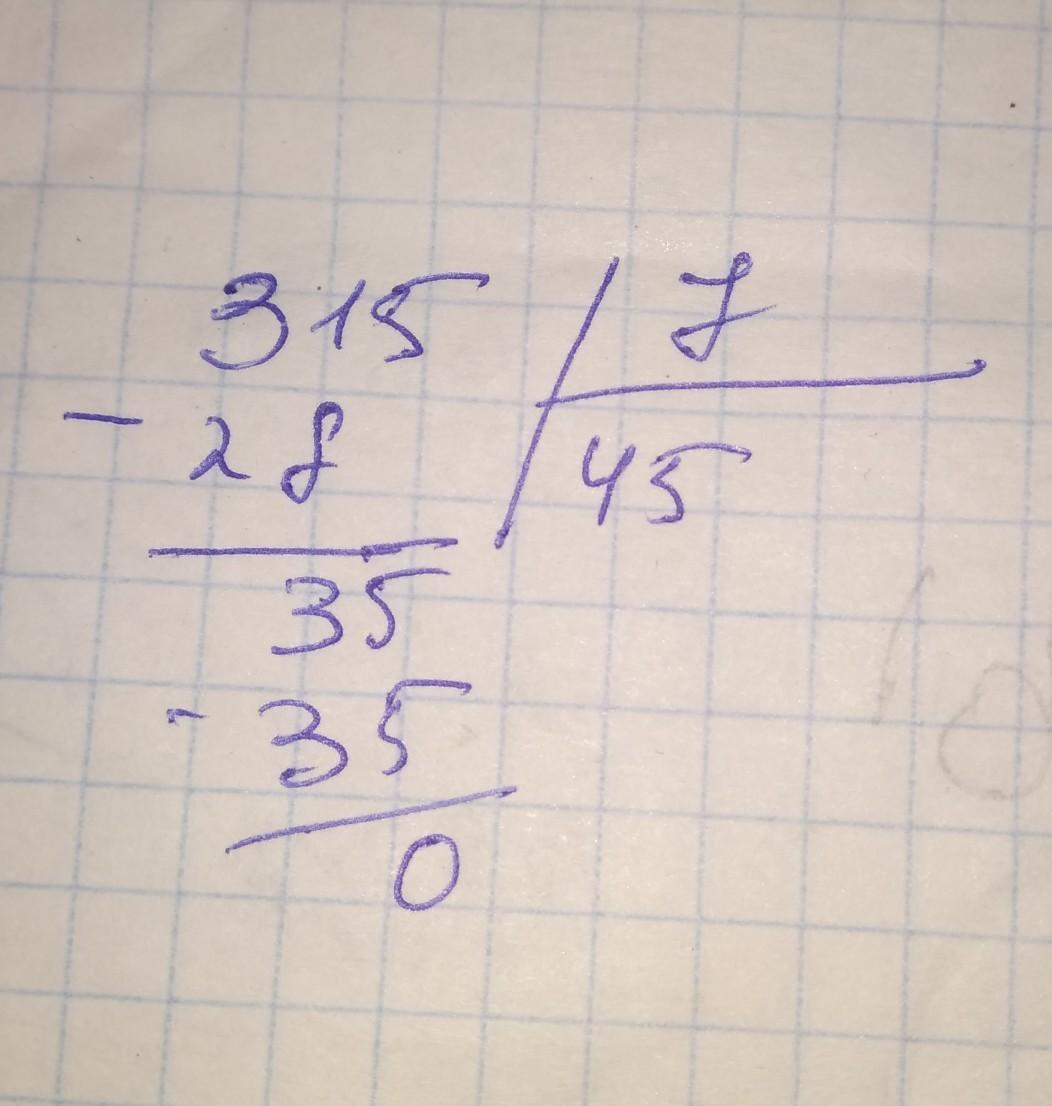 315 7
- 28 45
35
- 35
0